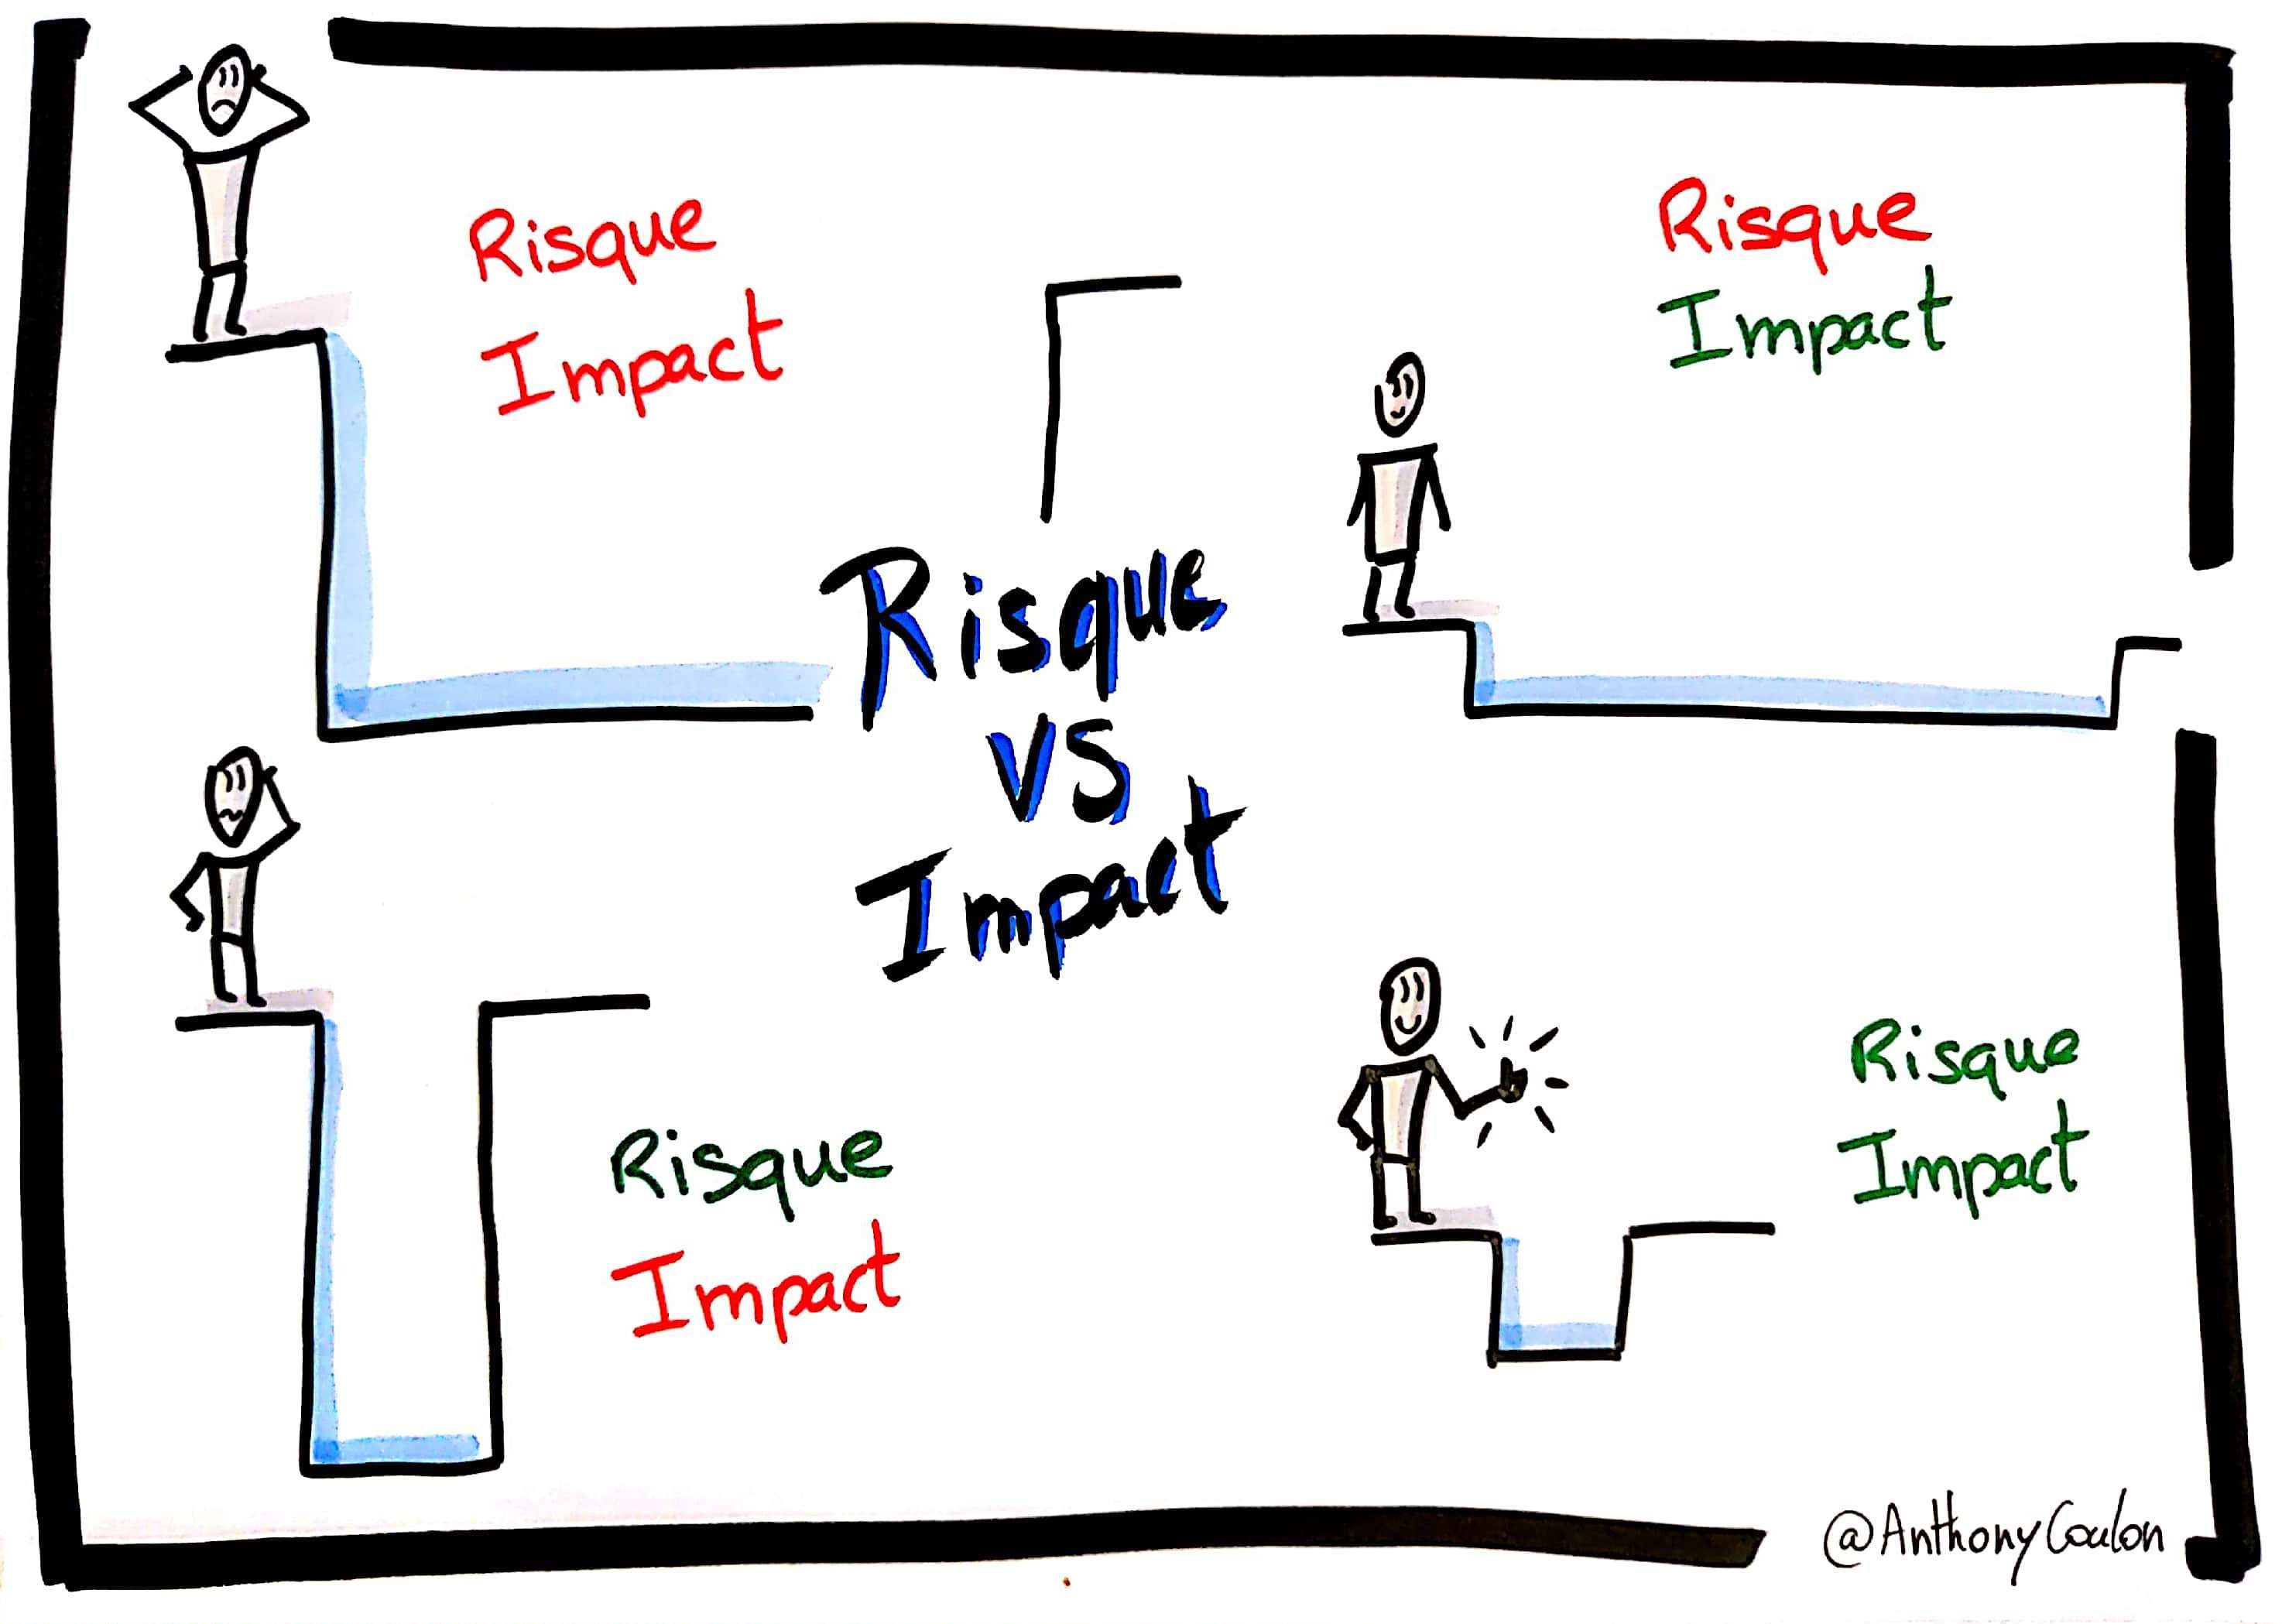 Risque
Impact
Risque
Impact
Risque
vs
Impact
Risque
Impact
Risque
Impact
@AnthonyCoulon